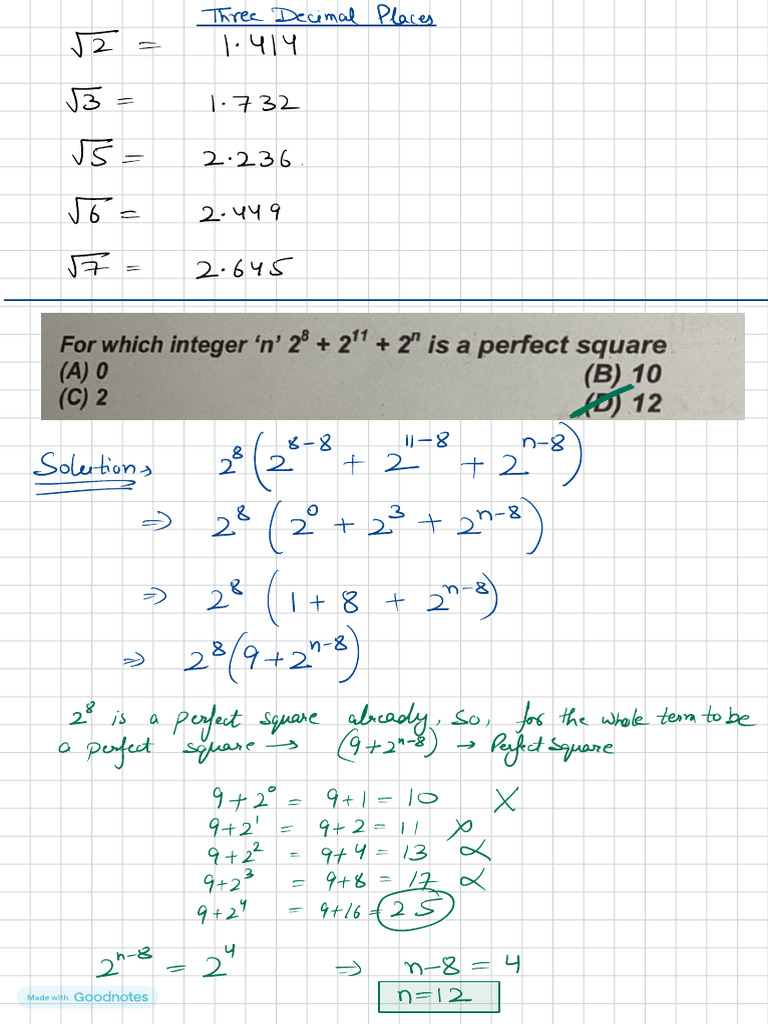 Three Decimal Places
√2 = 1.414
√3 = 1.732
√5 = 2.236
√6 = 2.449
√7 = 2.645
For which integer ‘n’ 2⁸ + 2¹¹ + 2ⁿ is a perfect square
(A) 0 (B) 10
(C) 2 (D) 12
Solution → 2⁸(2⁸⁻⁸ + 2¹¹⁻⁸ + 2ⁿ⁻⁸)
⇒ 2⁸(2⁰ + 2³ + 2ⁿ⁻⁸)
⇒ 2⁸(1 + 8 + 2ⁿ⁻⁸)
⇒ 2⁸(9 + 2ⁿ⁻⁸)
2⁸ is a perfect square already, so, for the whole term to be
a perfect square → (9 + 2ⁿ⁻⁸) → Perfect Square
9 + 2⁰ = 9 + 1 = 10 X
9 + 2¹ = 9 + 2 = 11 X
9 + 2² = 9 + 4 = 13 X
9 + 2³ = 9 + 8 = 17 X
9 + 2⁴ = 9 + 16 = 25
2ⁿ⁻⁸ = 2⁴ ⇒ n-8 = 4
n = 12
Made with Goodnotes